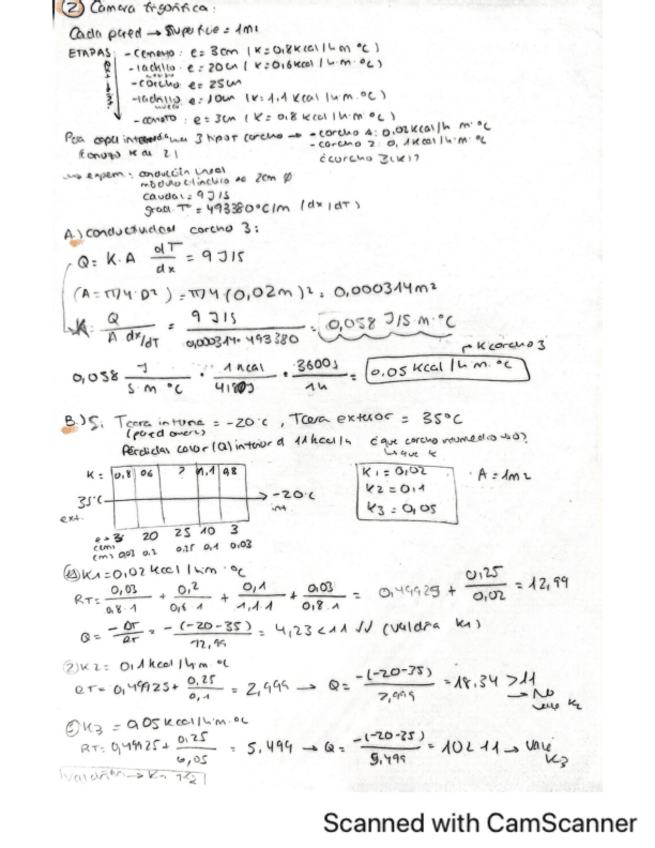 2) Cámara frigorífica:
Cada pared → Superficie = 1m²
ETAPAS: - Cemento: e = 3cm (K = 0,8 kcal/h m °C)
- ladrillo: e = 20cm (K = 0,6 kcal/h·m·°C)
- corcho e = 25cm
- ladrillo hueco e = 10cm (K = 1,1 kcal/h·m·°C)
- cemento: e = 3cm (K = 0,8 kcal/h m °C)
ext → int.
Para capa 3 tipos corcho → - corcho 1: 0,02 kcal/h m °C
- corcho 2: 0,1 kcal/h·m·°C
¿corcho 3 (K)?
→ experim: conducción lineal
módulo cilíndrico de 2cm ∅
caudal = 9 J/s
grad. T = 493380 °C/m (dx/dT)
A.) conductividad corcho 3:
Q = K·A dT/dx = 9 J/s
(A = π/4·D²) = π/4 (0,02m)² = 0,000314m²
K = Q / A dx/dT = 9 J/s / 0,000314·493380 = 0,058 J/s·m·°C
→ K corcho 3
0,058 J/s m °C · 1 kcal/4180J · 3600s/1h = 0,05 kcal/h m·°C
B.) Si Tcara interna = -20°C, Tcara exterior = 35°C
Pérdidas calor (Q) inferior a 11 kcal/h ¿que corcho
K = 0,8 0,6 ? 1,1 0,8
K1 = 0,02
K2 = 0,1
K3 = 0,05
· A = 1m²
35°C → -20°C
ext. int.
e = 3 20 25 10 3
(cm)
(m) 0,03 0,2 0,25 0,1 0,03
① K1 = 0,02 kcal/h m · °C
RT = 0,03/0,8·1 + 0,2/0,6·1 + 0,1/1,1·1 + 0,03/0,8·1 = 0,49925 + 0,25/0,02 = 12,99
Q = -ΔT/RT = -(-20-35)/12,99 = 4,23 < 11 √√ (valdría K1)
② K2 = 0,1 kcal/h m °C
RT = 0,49925 + 0,25/0,1 = 2,999 → Q = -(-20-35)/2,999 = 18,34 > 11 → No vale K2
③ K3 = 0,05 kcal/h·m·°C
RT = 0,49925 + 0,25/0,05 = 5,499 → Q = -(-20-35)/5,499 = 10 < 11 → vale K3
Scanned with CamScanner